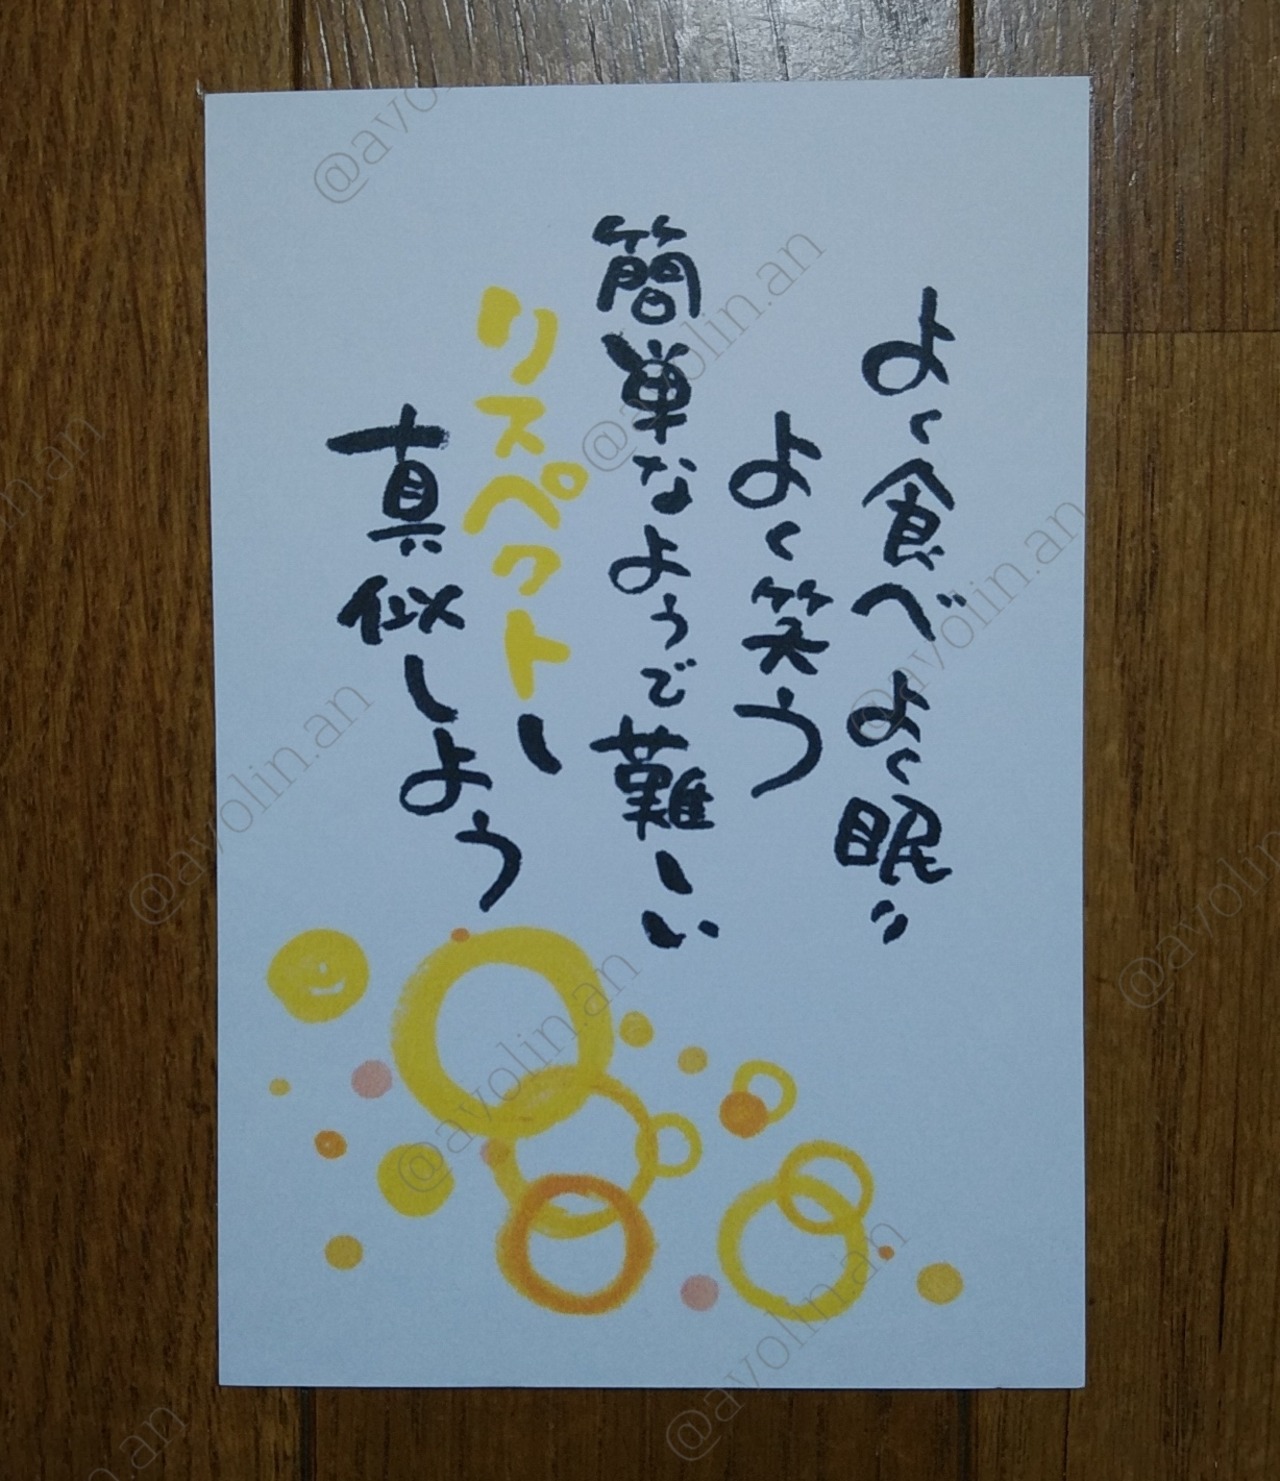 よく食べ よく眠り
よく笑う
簡単なようで難しい
リスペクトし
真似しよう
@ayolin.an